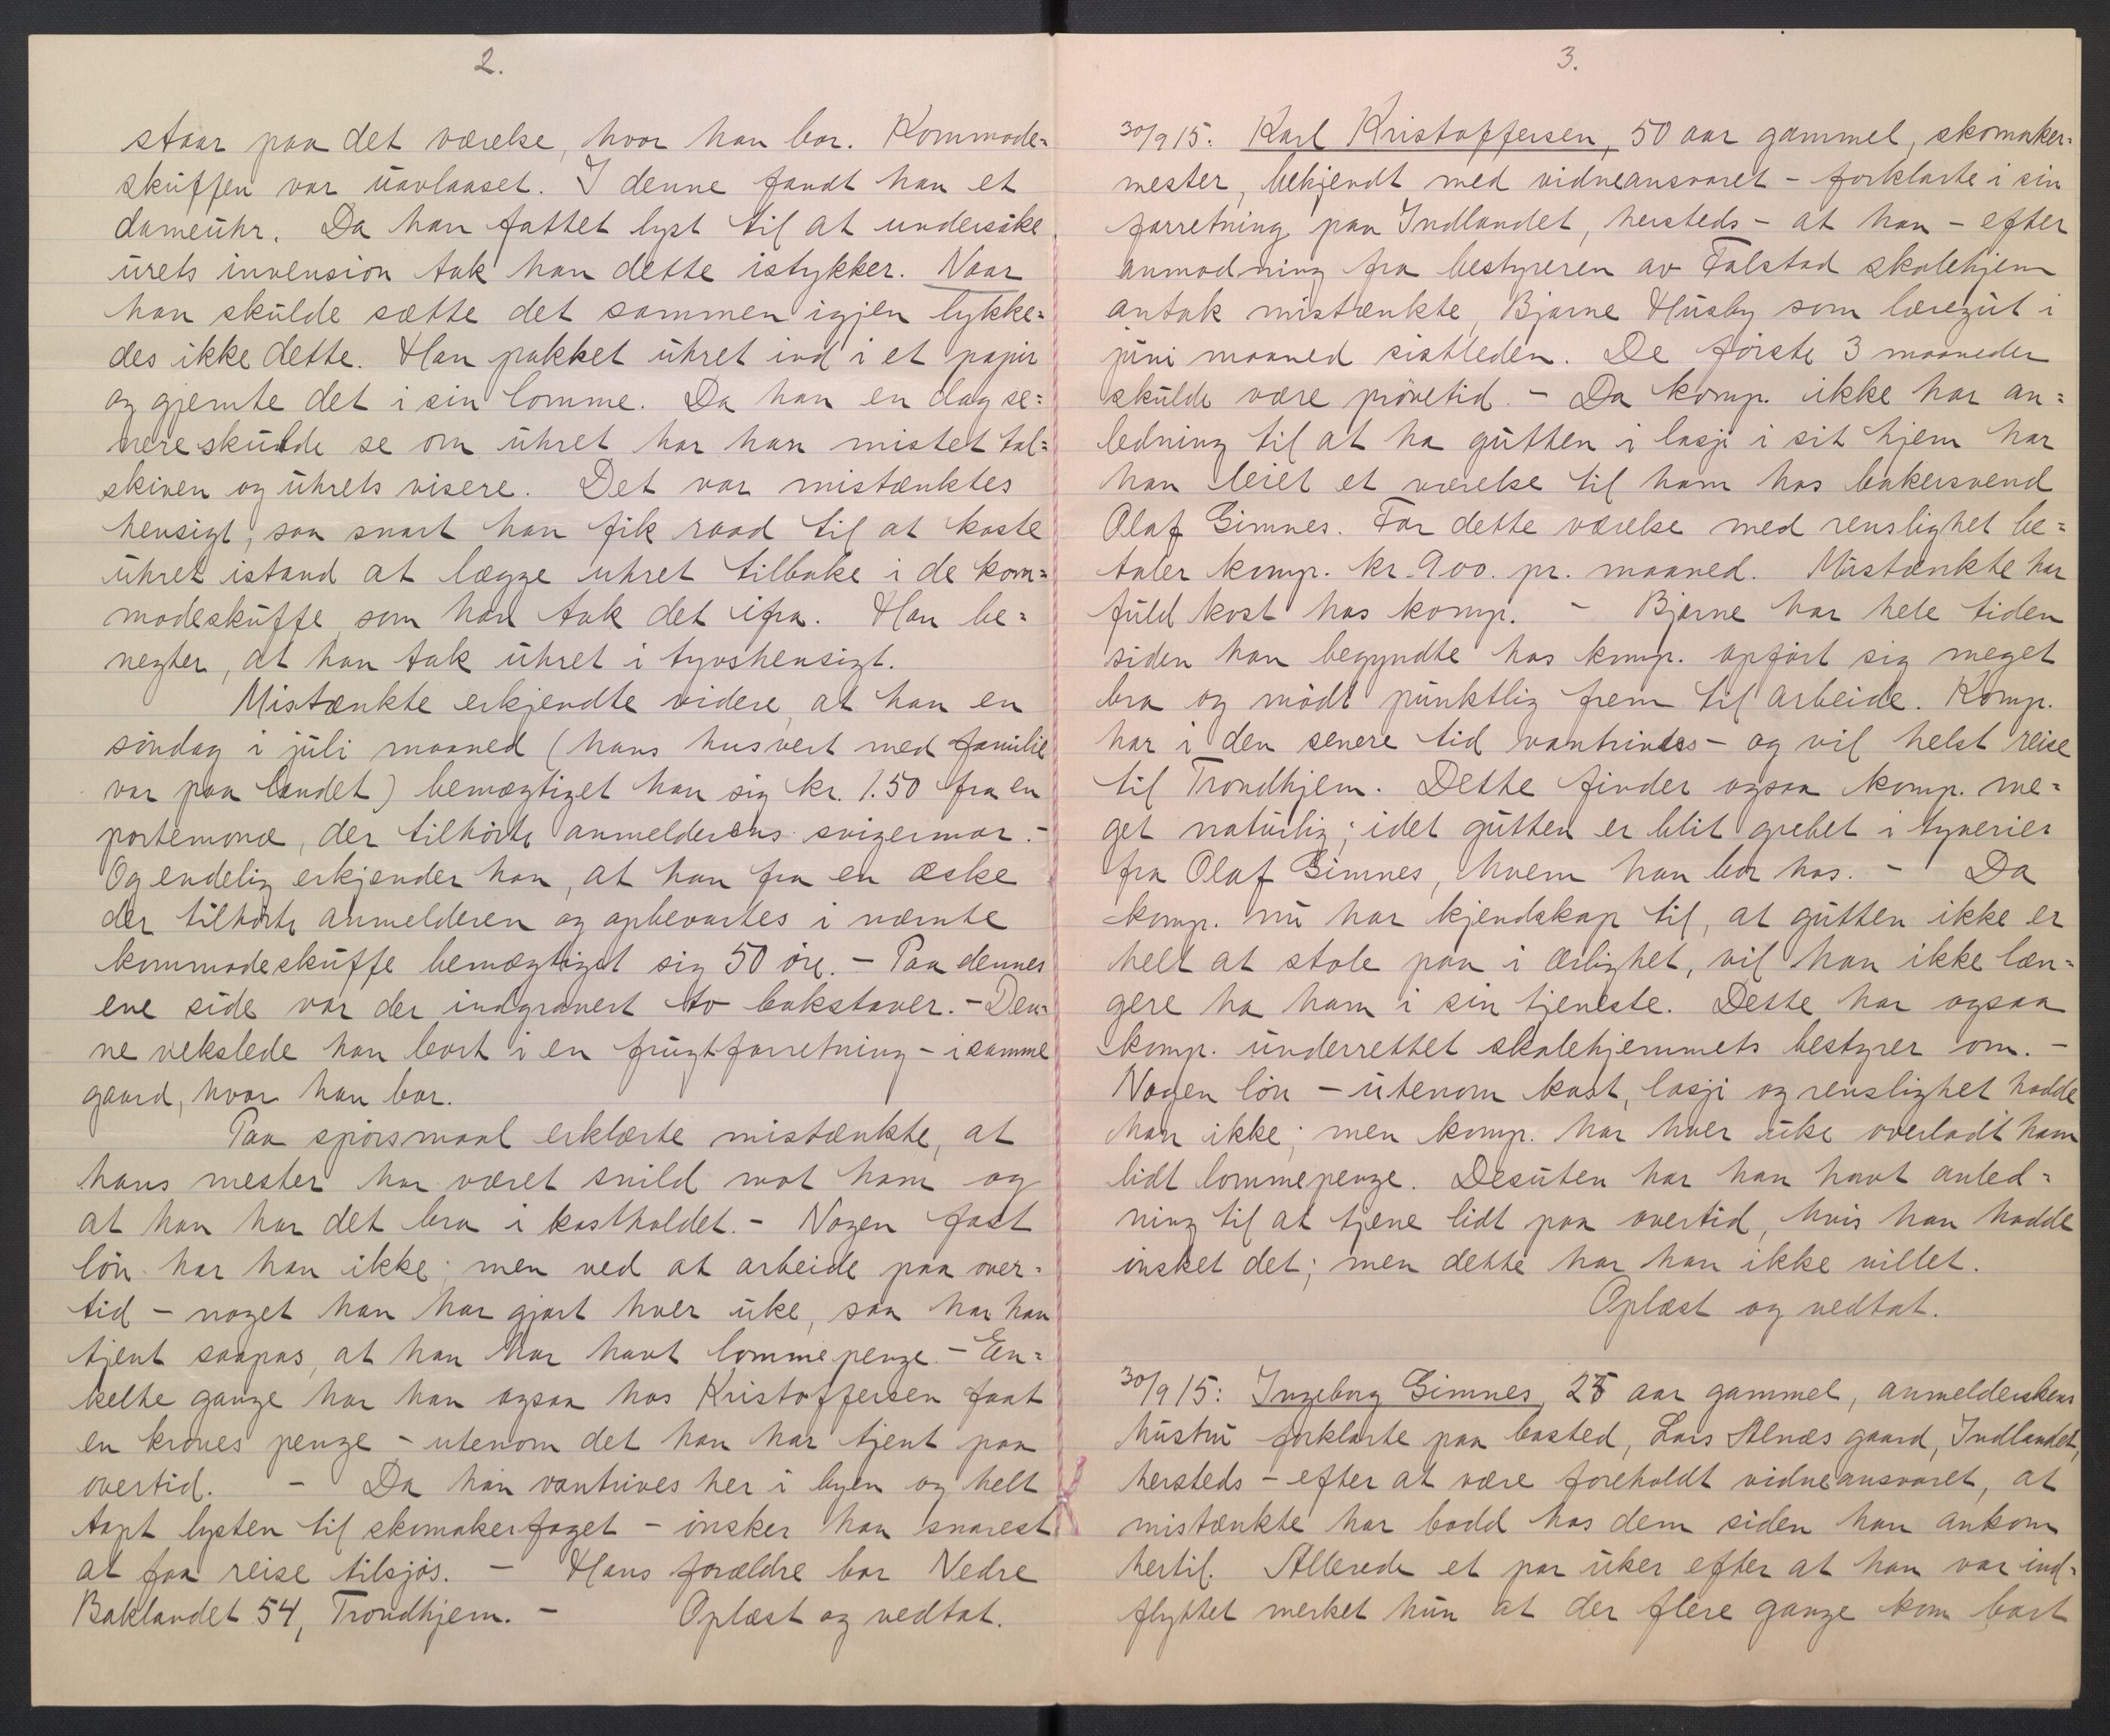 2.
staar paa det værelse, hvor han bor. Kommode=
skuffen var uavlaaset. I denne fandt han et
dameuhr. Da han fattet lyst til at undersøke
urets invension tok han dette istykker. Naar
han skulde sætte det sammen igjen lykke=
des ikke dette. Han pakket uhret ind i et papir
og gjemte det i sin lomme. Da han en dag se=
nere skulde se om uhret har han mistet tal=
skiven og uhrets visere. Det var mistænktes
hensigt, saa snart han fik raad til at koste
uhret istand at lægge uhret tilbake i de kom=
modeskuffe som han tok det ifra. Han be=
negter, at han tok uhret i tyvshensigt.
Mistænkte erkjendte videre, at han en
søndag i juli maaned (hans husvert med familie
var paa landet) bemægtiget han sig kr. 1.50 fra en
portemonæ, der tilhørte anmelderens svigermor. -
Og endelig erkjender han, at han fra en æske
der tilhørte anmelderen og opbevartes i nævnte
kommodeskuffe bemægtiget sig 50 øre. - Paa dennes
ene side var der indgravert to bokstaver. - Den=
ne vekslede han bort i en frugtforretning - i samme
gaard, hvor han bor.
Paa spørsmaal erklærte mistænkte, at
hans mester har været snild mot ham og
at han har det bra i kostholdet. - Nogen fast
løn har han ikke; men ved at arbeide paa over=
tid - noget han har gjort hver uke, saa har han
tjent saapas, at han har havt lommepenge. - En=
kelte gange har han ogsaa hos Kristoffersen faat
en krones penge - utenom det han har tjent paa
overtid. - Da han vantrives her i byen og helt
tapt lysten til skomakerfaget - ønsker han snarest
at faa reise tilsjøs. - Hans forældre bor Nedre
Baklandet 54, Trondhjem. - Oplæst og vedtat.
3.
30/9 15: Karl Kristoffersen, 50 aar gammel, skomaker=
mester, bekjendt med vidneansvaret - forklarte i sin
forretning paa Indlandet, hersteds - at han - efter
anmodning fra bestyreren av Falstad skolehjem
antok mistænkte, Bjarne Husby som læregut i
juni maaned sistleden. De første 3 maaneder
skulde være prøvetid. - Da komp. ikke har an=
ledning til at ha gutten i losji i sit hjem har
han leiet et værelse til ham hos bakersvend
Olaf Gimnes. For dette værelse med renslighet be=
taler komp. kr. 9.00. pr. maaned. Mistænkte har
fuld kost hos komp. - Bjarne har hele tiden
siden han begyndte hos komp. opført sig meget
bra og mødt punktlig frem til arbeide. Komp.
har i den senere tid vantrives - og vil helst reise
til Trondhjem. Dette finder ogsaa komp. me=
get naturlig; idet gutten er blit grebet i tyverier
fra Olaf Gimnes, hvem han bor hos. - Da
komp. nu har kjendskap til, at gutten ikke er
helt at stole paa i ærlighet, vil han ikke læn=
gere ha ham i sin tjeneste. Dette har ogsaa
komp. underrettet skolehjemmets bestyrer om. -
Nogen løn - utenom kost, losji og renslighet hadde
han ikke; men komp. har hver uke overladt ham
lidt lommepenge. Desuten har han havt anled=
ning til at tjene lidt paa overtid, hvis han hadde
ønsket det; men dette har han ikke villet.
Oplæst og vedtat.
30/9 15: Ingeborg Gimnes, 25 aar gammel, anmelderskens
hustru forklarte paa bosted, Lars Alnæs gaard, Indlandet,
hersteds - efter at være foreholdt vidneansvaret, at
mistænkte har bodd hos dem siden han ankom
hertil. Allerede et par uker efter at han var ind=
flyttet merket hun at der flere gange kom bort